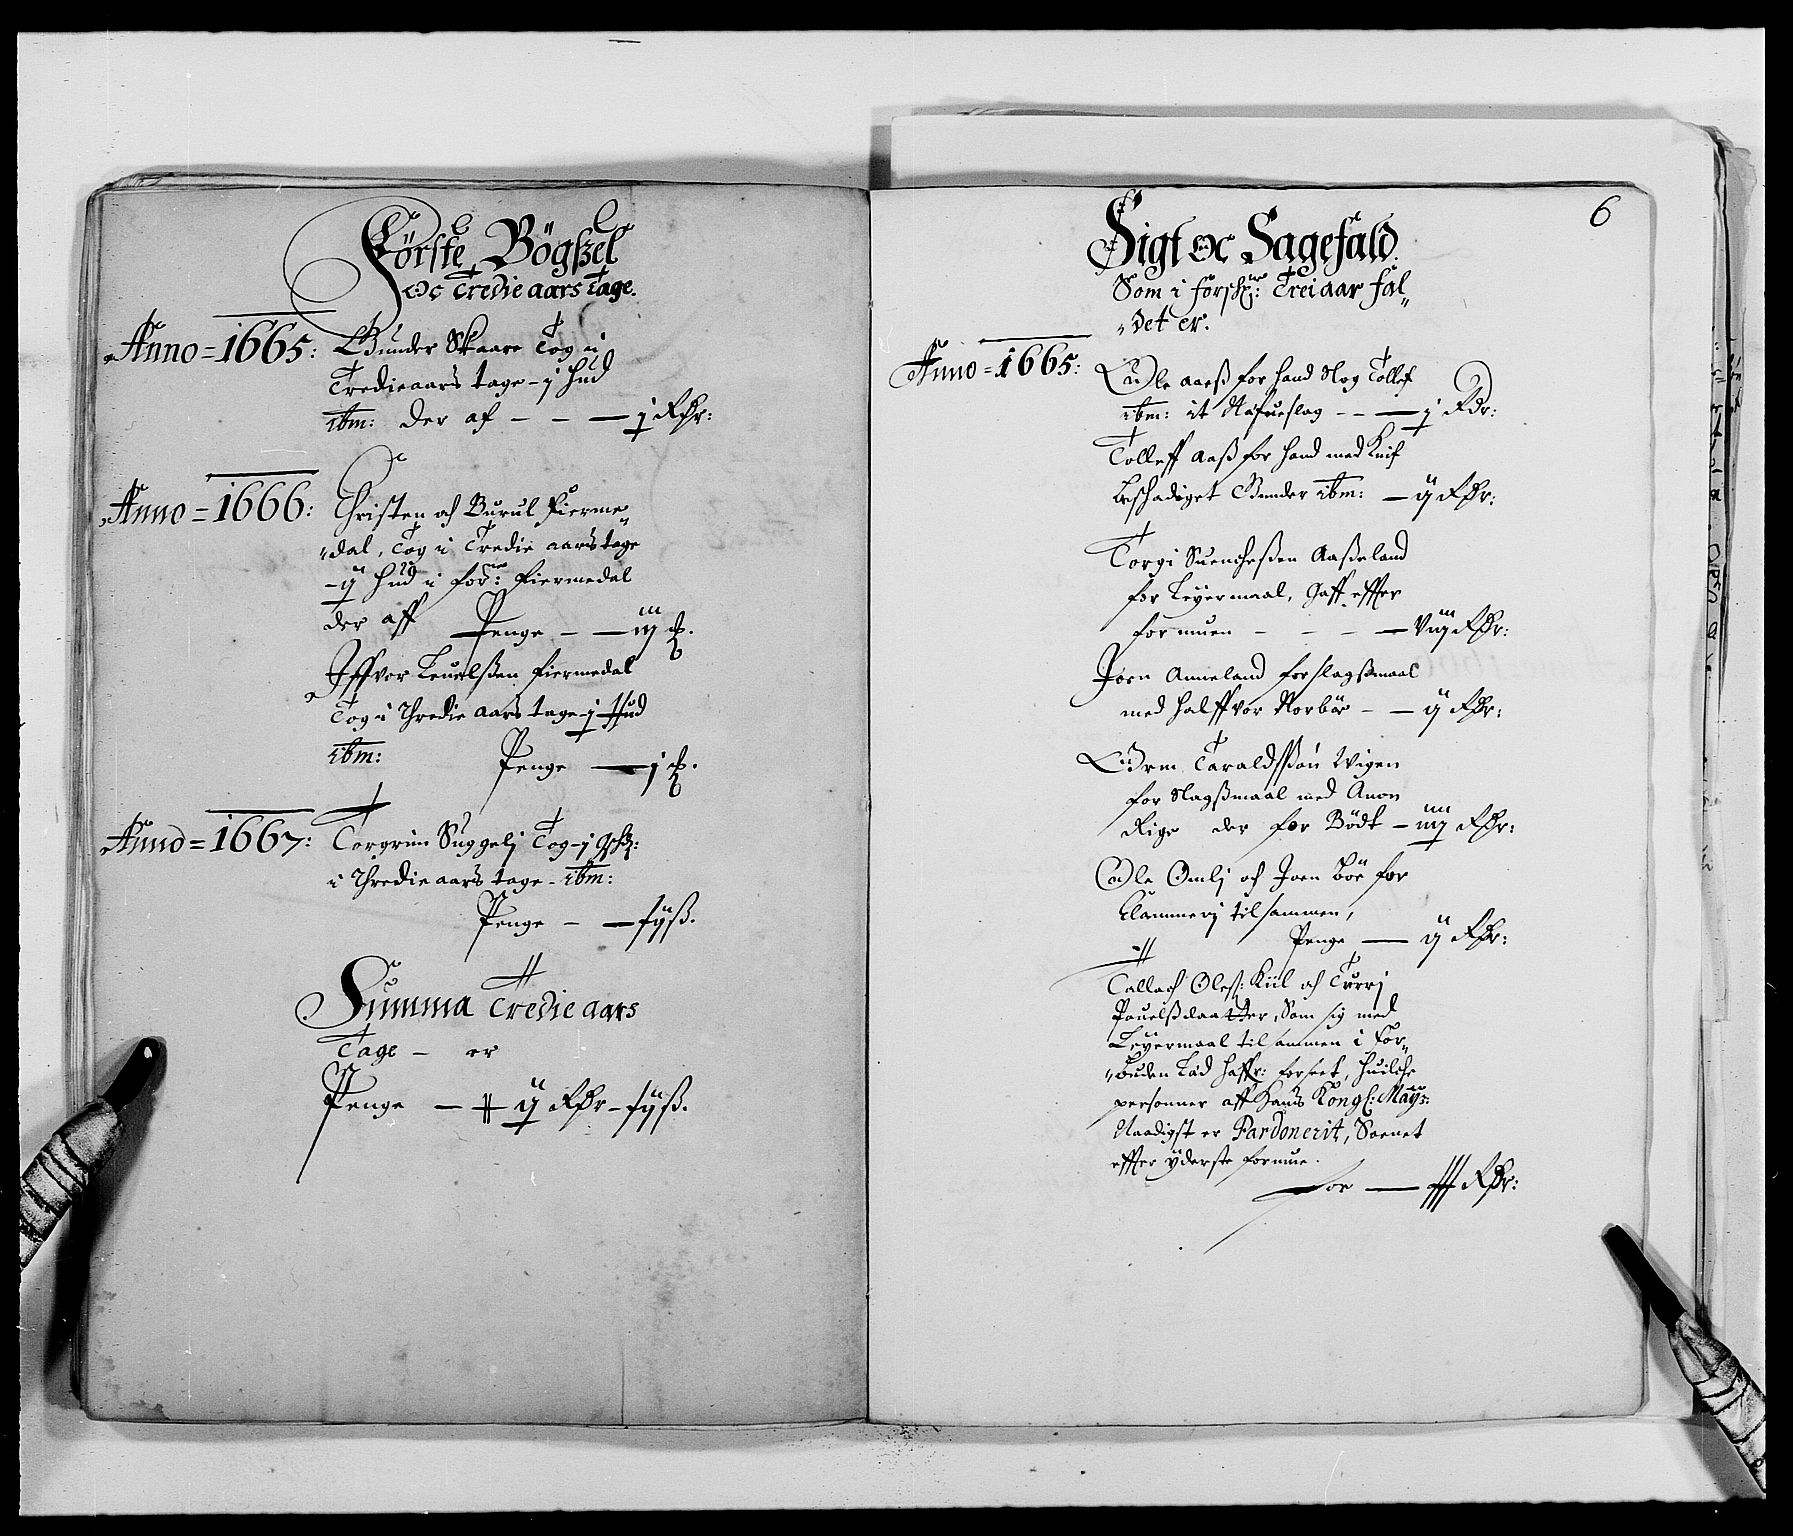 Förste Bögßel
Oc Tredie aars Tage.
Anno = 1665: Gunder Skaare Tog i
Tredieaars tage - j hud
ibm: der af - - - j Rdr:
Anno = 1666: Christen och Burul Fierme„
„dal, Tog i Tredie aars tage
- ij hud i for: Fiermedal
der aff Penge - - iij
Tog i Thredie aars tage - j Hud
ibm: Penge - j
Anno = 1667: Torgrim Suggelj Tog - j
i Thredie aars tage - ibm:
Penge - -
Summa Tredie aars
Tage - er
Penge - ij Rdr -
6
Sigt oc Sagefald.
Som i forsk: Trei aar fal„
„det er.
Anno = 1665: Ole aaeß for hand slog Tollef
ibm: it Nefueslag - - - j Rdr:
Tolleff Aaß for hand med Knif
beschadiget Gunder ibm: - ij Rdr:
Torgi Suencheßen Aaßeland
for Leyermaal, Gaff effter
formuen - - - - viij Rdr:
Joen Anneland for slagßmaal
med Halffvor Norbör - - ij Rdr:
Orm Taraldßön Wigen
for Slagßmaal med Anon
Rige der for Bödt - iiij Rdr:
Ole Omlj och Joen Böe for
Clammerj tilsammen,
Penge - ij Rdr:
Tallach Oless: Kiil och Turrj
Pouelßdaatter, Som sig med
Leyermaal tilsammen i For„
„buden Led haffr: forseet, huilche
personner aff Hans Kongl: Mays:
Naadigst er Pardonerit, Soenet
effter yderste formue.
for - Rdr: